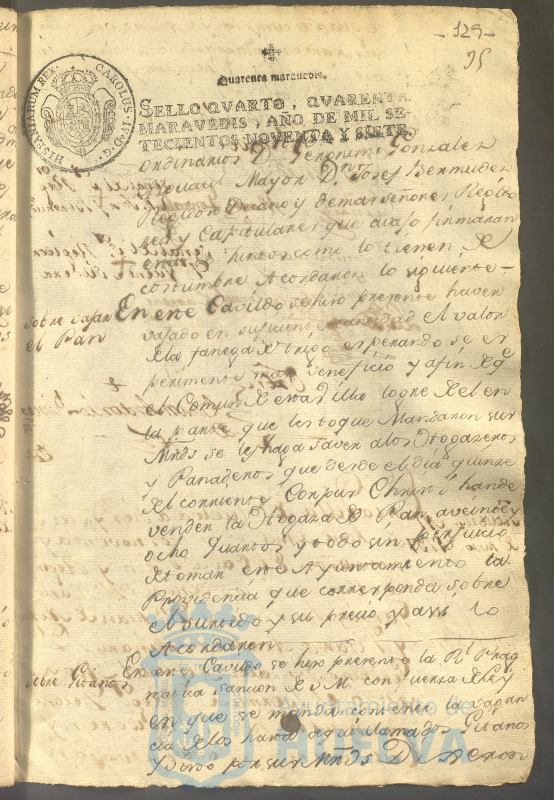 -129-
95
HISPANIARUM REX CAROLUS IV D G
Quarenta maravedis.
SELLO QVARTO, QVARENTA
MARAVEDIS, AÑO DE MIL SE-
TECIENTOS NOVENTA Y SIETE.
Ordinarios Dn Geronimo Gonzalez
Alguacil Mayor Dn Josef Bermudez
Regidor Decano y demas señores Regido
res y Capitulares que avajo firmaran
Juntos como lo tienen de
costumbre Acordaron lo siguiente-
sobre vajar
el Pan
En este Cavildo se hizo presente haver
vajado en suficiente cantidad el valor
de la fanega de trigo esperando se es
perimente mas beneficio y afin de q.
el Comun de esta villa logre de el en
la parte que les toque Mandaron sus
Mrds se les haga saver alos Hogazeros
y Panaderos que desde el dia quinze
del corriente Corpus Christi hande
vender la Hogaza de Pan aveinte y
ocho quartos y todo sin perjuicio
de tomar este Ayuntamiento la
Providencia que corresponda sobre
el surtido y su precio y assi lo
Acordaron
sobre Gitanos
En este Cavildo se hizo presente la Rl Prag
matica sancion de S.M. con fuerza de Ley
en que se manda contener la vagan
cia de los hasta aqui llamados Gitanos
y visto por sus Mrds Dixeron
Ayuntamiento de
HUELVA